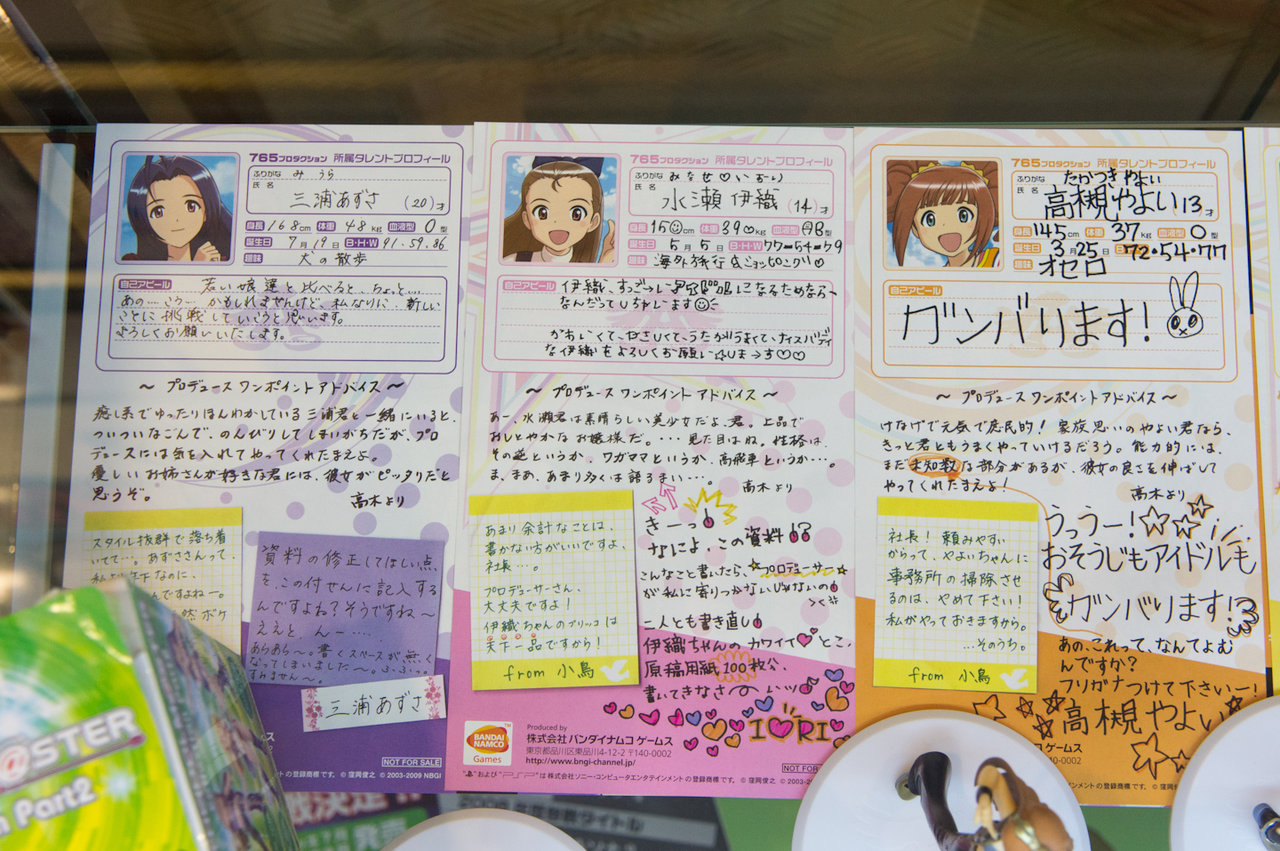 765プロダクション 所属タレントプロフィール
ふりがな み うら
氏名 三浦あずさ (20)才
身長 168cm 体重 48kg 血液型 O型
誕生日 7月19日 B・H・W 91.59.86
趣味 犬の散歩
自己アピール
若い娘達と比べると、ちょっと…
あの…こう…かもしれませんけど、私なりに、新しい
ことに挑戦していこうと思います。
よろしくお願いいたします。
〜 プロデュース ワンポイント アドバイス 〜
癒し系でゆったりほんわかしている三浦君と一緒にいると、
ついついなごんで、のんびりしてしまいがちだが、プロ
デュースには気を入れてやってくれたまえよ。
優しいお姉さんが好きな君には、彼女がピッタリだと
思うぞ。
高木より
スタイル抜群で落ち着
いてて…。あずささんって、
資料の修正してほしい点
を、この付せんに記入する
んですよね?そうですね〜
ええと、んー……
あらあら〜。書くスペースが無く
なってしまいました〜。ふふっ。
すみません〜。
三浦あずさ
NOT FOR SALE
の登録商標です。 © 窪岡俊之 © 2003-2009 NBGI
765プロダクション 所属タレントプロフィール
ふりがな みなせ♡いおり
氏名 水瀬 伊織 (14)才
身長 15☺cm 体重 39kg 血液型 AB型
誕生日 5月5日 B・H・W 77-54-79
趣味 海外旅行&ショッピング♡
自己アピール
なんだってしちゃいます☺
かわいくて、やさしくて、うたがうまくて、ナイスバディ
な伊織をよろしくお願いしま〜す♡♡
〜 プロデュース ワンポイント アドバイス 〜
あー、水瀬君は素晴らしい美少女だよ、君。上品で
おしとやかなお嬢様だ。…見た目はね。性格は、
その逆というか、ワガママというか、高飛車というか…。
ま、まあ、あまり多くは語るまい…。
高木より
あまり余計なことは、
書かない方がいいですよ、
社長…。
プロデューサーさん、
大丈夫ですよ!
伊織ちゃんのブリッコは
天下一品ですから!
from 小鳥
きーっ!
なによ、この資料!?
こんなこと書いたら、プロデューサー
が私に寄りつかないじゃないの!
二人とも書き直し!
伊織ちゃんの、カワイイ♥とこ、
原稿用紙100枚分、
書いてきなさーいいッ!
IORI
BANDAI NAMCO Games
Produced by
株式会社 バンダイナムコ ゲームス
東京都品川区東品川4-12-2 〒140-0002
http://www.bngi-channel.jp/
NOT FOR
および "PSP" は株式会社ソニー・コンピュータエンタテインメントの登録商標です。 © 窪岡俊之 © 2003-
765プロダクション 所属タレントプロフィール
ふりがな たかつきやよい
氏名 高槻やよい 13才
身長 145cm 体重 37kg 血液型 O型
誕生日 3月25日 B・H・W 72・54・77
趣味 オセロ
自己アピール
ガンバります!
〜 プロデュース ワンポイント アドバイス 〜
けなげで元気で庶民的! 家族思いのやよい君なら、
きっと君ともうまくやっていけるだろう。能力的には、
まだ未知数な部分があるが、彼女の良さを伸ばして
やってくれたまえよ!
高木より
社長! 頼みやすい
からって、やよいちゃんに
事務所の掃除させ
るのは、やめて下さい!
私がやっておきますから。
…そのうち。
from 小鳥
うっうー!
おそうじもアイドルも
ガンバります!
あの、これって、なんてよむ
んですか?
フリガナつけて下さいー!
高槻やよい
コ ゲームス
40-0002
の登録商標です。 © 窪岡
@STER
Part2